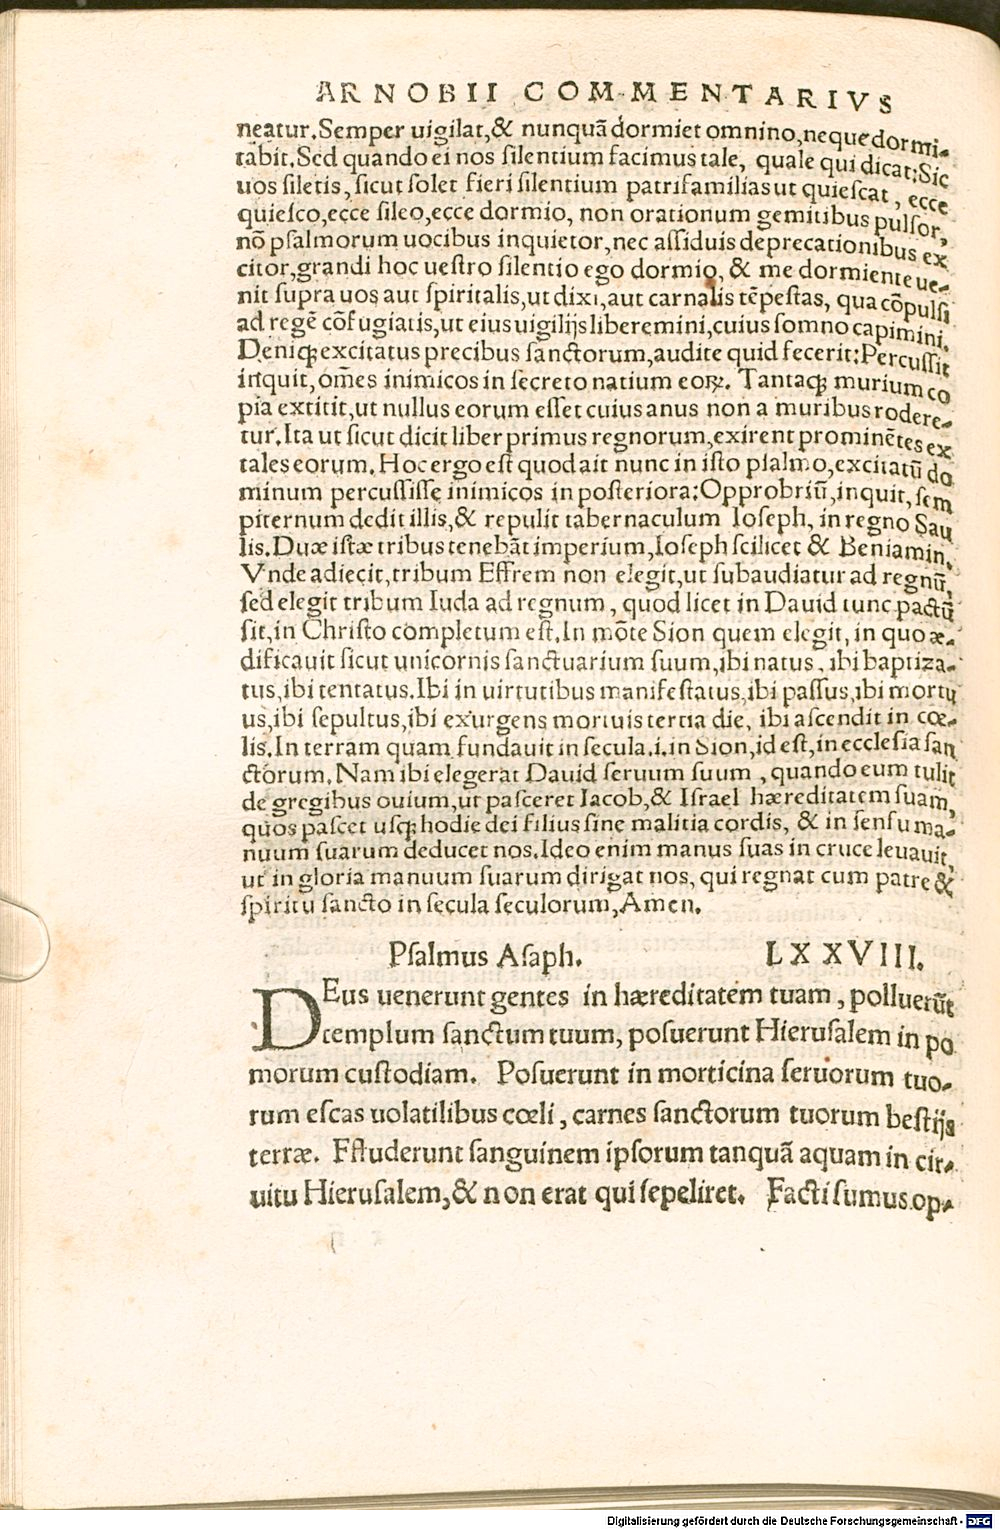 ARNOBII COMMENTARIVS
neatur.Semper uigilat,& nunquã dormiet omnino,neque dormi-
tabit.Sed quando ei nos silentium facimus tale, quale qui dicat:Sic
uos siletis, sicut solet fieri silentium patrifamilias ut quiescat, ecce
quiesco,ecce sileo,ecce dormio, non orationum gemitibus pulsor,
nõ psalmorum uocibus inquietor, nec assiduis deprecationibus ex
citor,grandi hoc uestro silentio ego dormio, & me dormiente ue-
nit supra uos aut spiritalis,ut dixi,aut carnalis tẽpestas, qua cõpulsi
ad regẽ cõfugiatis,ut eius uigilijs liberemini,cuius somno capimini.
Deniq; excitatus precibus sanctorum,audite quid fecerit:Percussit
inquit, om̃es inimicos in secreto natium eorꝝ. Tantaq; murium co
pia extitit,ut nullus eorum esset cuius anus non a muribus rodere-
tur.Ita ut sicut dicit liber primus regnorum,exirent prominẽtes ex
tales eorum. Hoc ergo est quod ait nunc in isto psalmo,excitatũ do
minum percussisse inimicos in posteriora:Opprobriũ,inquit, sem
piternum dedit illis,& repulit tabernaculum Ioseph, in regno Sau
lis.Duæ istæ tribus tenebãt imperium,Ioseph scilicet & Beniamin.
Vnde adiecit,tribum Effrem non elegit,ut subaudiatur ad regnũ,
sed elegit tribum Iuda ad regnum, quod licet in Dauid tunc pactũ
sit,in Christo completum est.In mõte Sion quem elegit, in quo æ-
dificauit sicut unicornis sanctuarium suum,ibi natus, ibi baptiza-
tus,ibi tentatus.Ibi in uirtutibus manifestatus,ibi passus,ibi mortu
us,ibi sepultus,ibi exurgens mortuis tertia die, ibi ascendit in cœ-
lis.In terram quam fundauit in secula.i.in Sion,id est,in ecclesia san
ctorum.Nam ibi elegerat Dauid seruum suum, quando eum tulit
de gregibus ouium,ut pasceret Iacob,& Israel hæreditatem suam,
quos pascet usq; hodie dei filius sine malitia cordis, & in sensu ma-
nuum suarum deducet nos.Ideo enim manus suas in cruce leuauit,
ut in gloria manuum suarum dirigat nos, qui regnat cum patre &
spiritu sancto in secula seculorum,Amen.
Psalmus Asaph. LXXVIII.
DEus uenerunt gentes in hæreditatem tuam, polluerũt
templum sanctum tuum, posuerunt Hierusalem in po
morum custodiam. Posuerunt in morticina seruorum tuo-
rum escas uolatilibus cœli, carnes sanctorum tuorum bestijs
terræ. Effuderunt sanguinem ipsorum tanquã aquam in cir-
uitu Hierusalem,& non erat qui sepeliret. Facti sumus op-
Digitalisierung gefördert durch die Deutsche Forschungsgemeinschaft - DFG